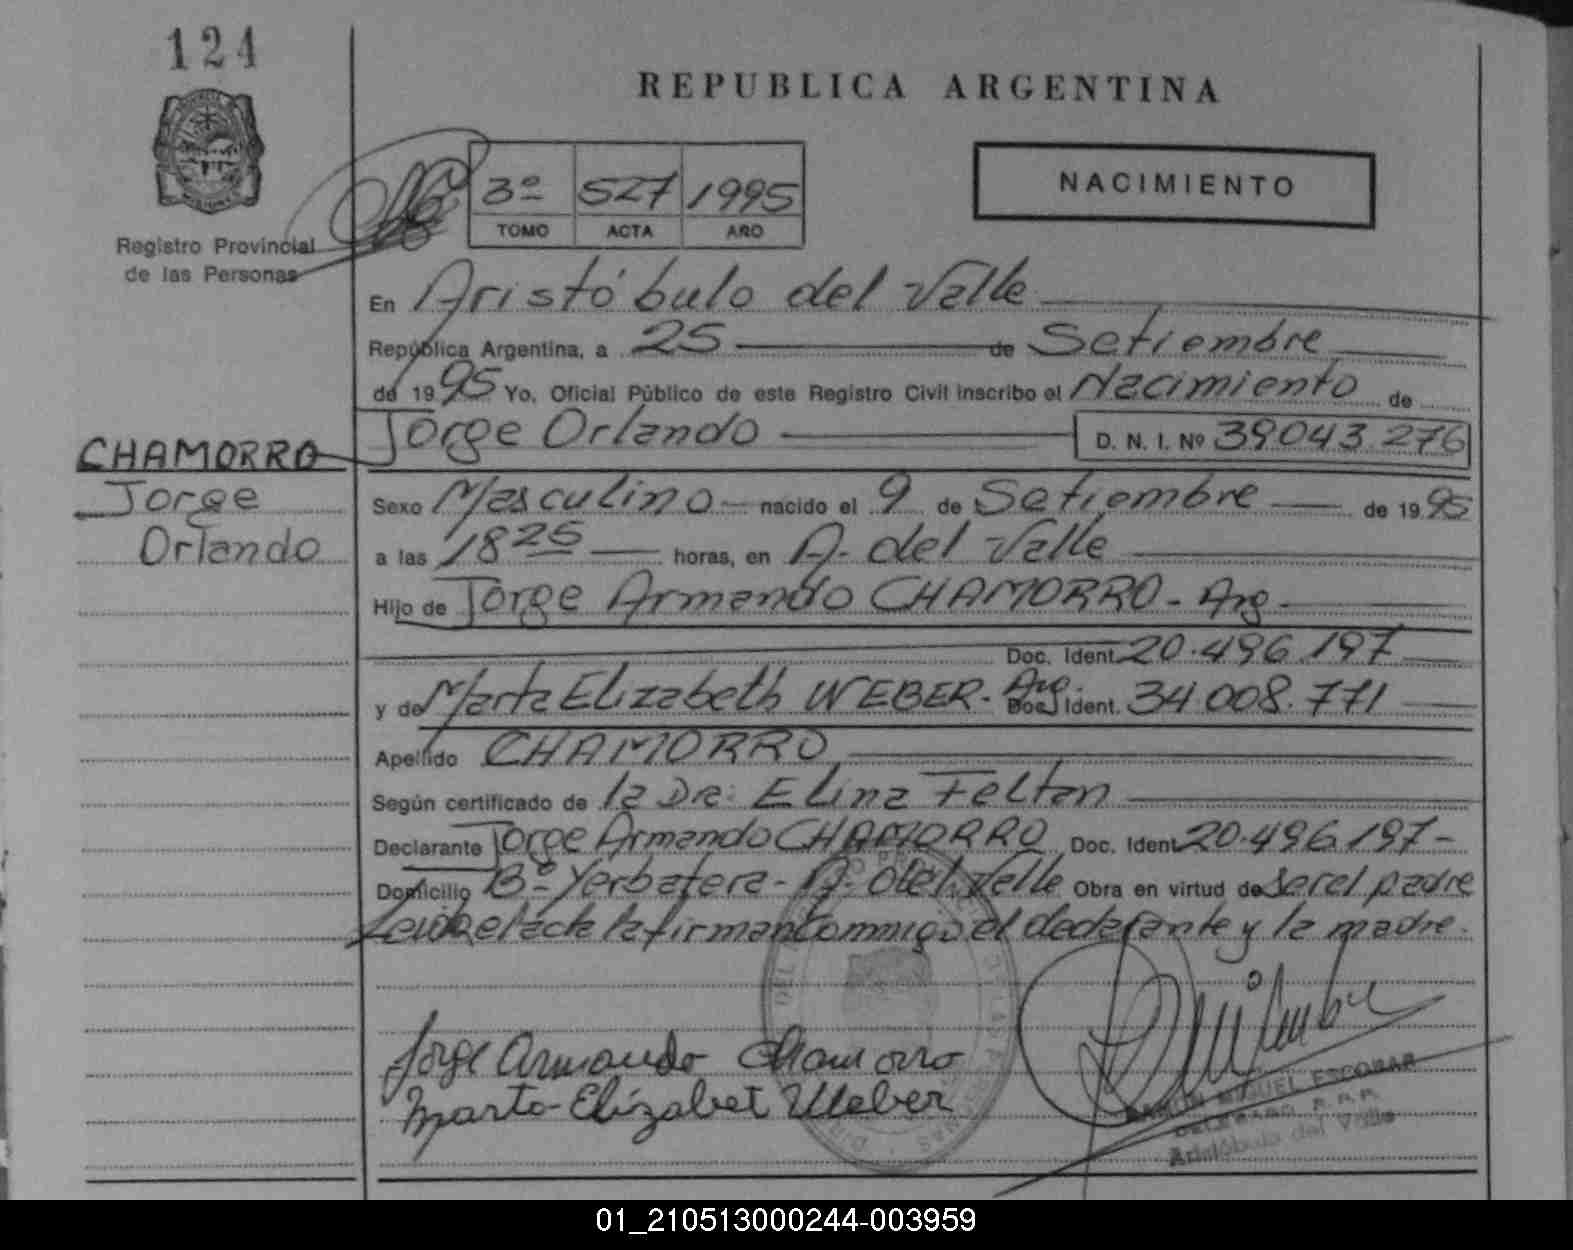 124
REPUBLICA ARGENTINA
NACIMIENTO
3º 527 1995
TOMO ACTA AÑO
Registro Provincial
de las Personas
En Aristóbulo del Valle
República Argentina, a 25 de Setiembre
de 1995 Yo, Oficial Público de este Registro Civil inscribo el Nacimiento de
Jorge Orlando D. N. I. Nº 39.043.276
CHAMORRO
Jorge
Orlando
Sexo Masculino nacido el 9 de Setiembre de 1995
a las 18 25 horas, en A. del Valle
Hijo de Jorge Armando CHAMORRO - Arg
Doc. Ident. 20.496.197
y de Marta Elizabeth WEBER - Arg. Doc. Ident. 34.008.771
Apellido CHAMORRO
Según certificado de la Dra: Elina Feltan
Declarante Jorge Armando CHAMORRO Doc. Ident. 20.496.197-
Domicilio Bº Yerbatera - A. del Valle Obra en virtud de ser el padre
Leída el acta la firman Conmigo el declarante y la madre.
Jorge Armando Chamorro
Marta Elizabet Weber
RAMON MIGUEL ESCOBAR
DELEGADO R.P.P.
Aristóbulo del Valle
01_210513000244-003959